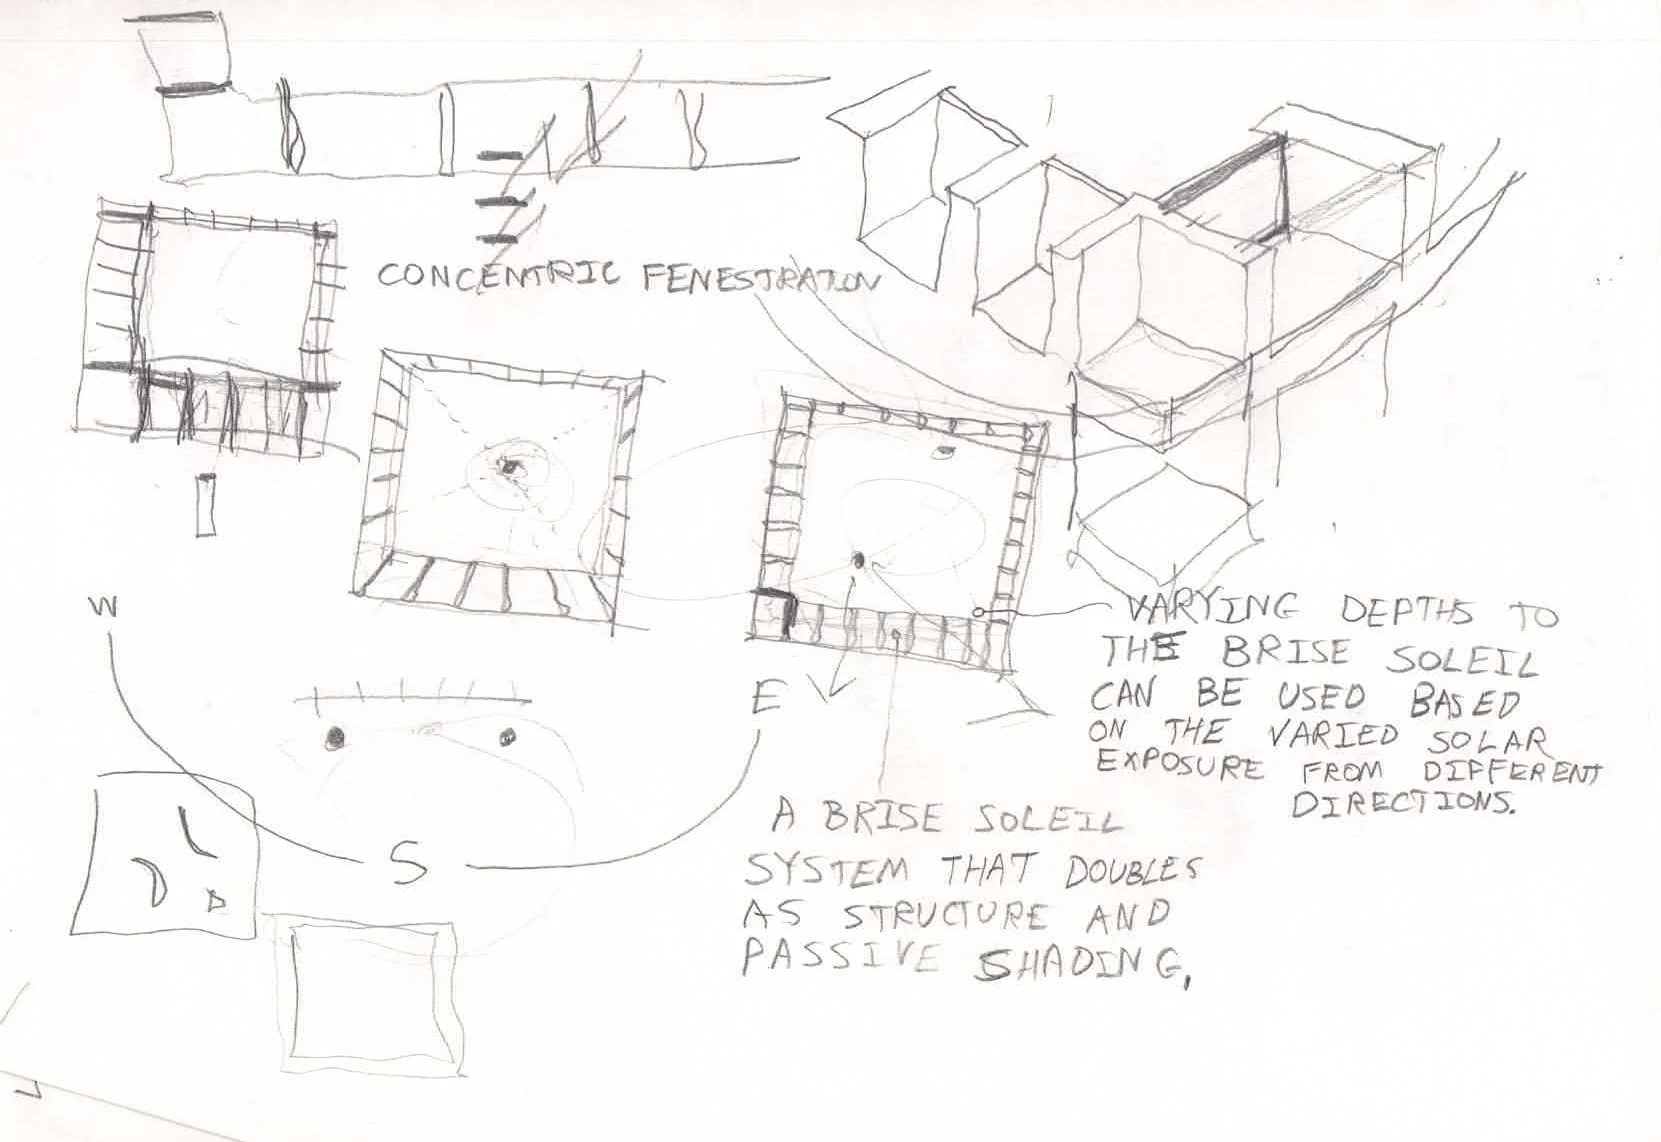 CONCENTRIC FENESTRATION
W
E
S
VARYING DEPTHS TO
THE BRISE SOLEIL
CAN BE USED BASED
ON THE VARIED SOLAR
EXPOSURE FROM DIFFERENT
DIRECTIONS.
A BRISE SOLEIL
SYSTEM THAT DOUBLES
AS STRUCTURE AND
PASSIVE SHADING,